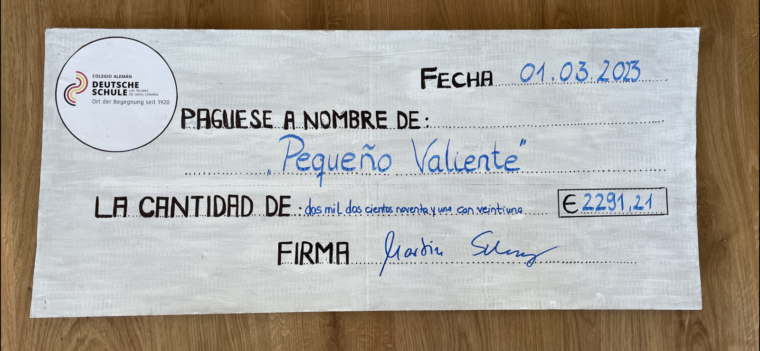 COLEGIO ALEMÁN
DEUTSCHE
SCHULE LAS PALMAS DE GRAN CANARIA
Ort der Begegnung seit 1920
FECHA 01.03.2023
PAGUESE A NOMBRE DE:
„Pequeño Valiente"
LA CANTIDAD DE: dos mil dos cientos noventa y uno con veintiuno € 2291,21
FIRMA Martin